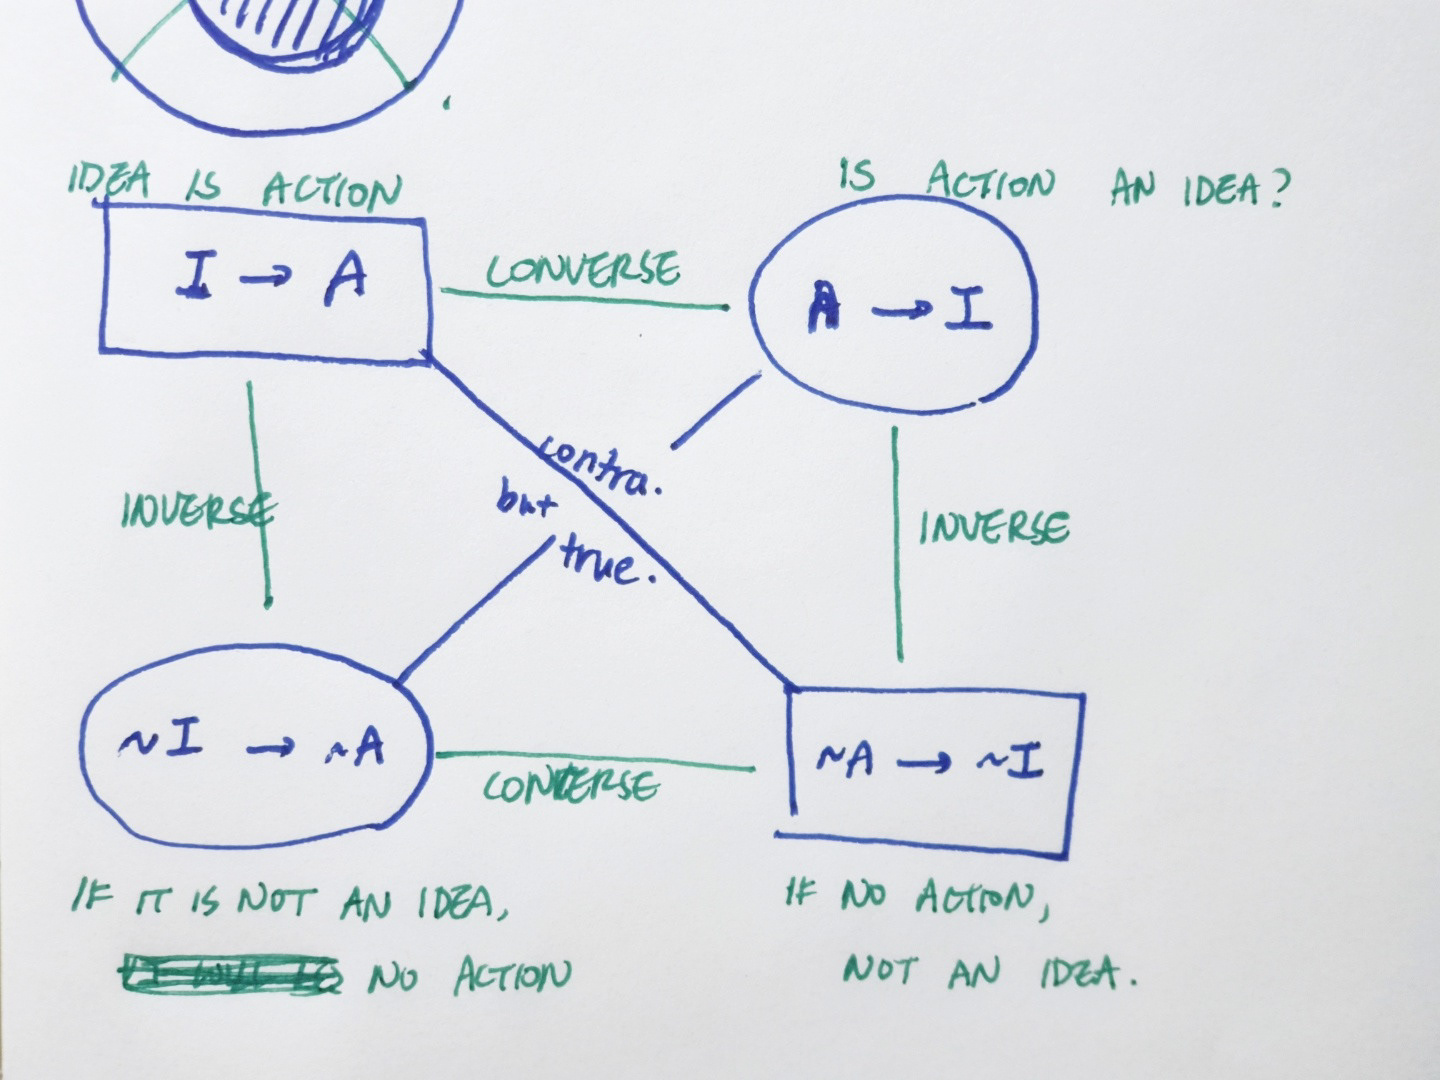 IDEA IS ACTION
IS ACTION AN IDEA?
I → A
CONVERSE
A → I
contra.
but
true.
INVERSE
INVERSE
~I → ~A
CONVERSE
~A → ~I
IF IT IS NOT AN IDEA,
NO ACTION
IF NO ACTION,
NOT AN IDEA.